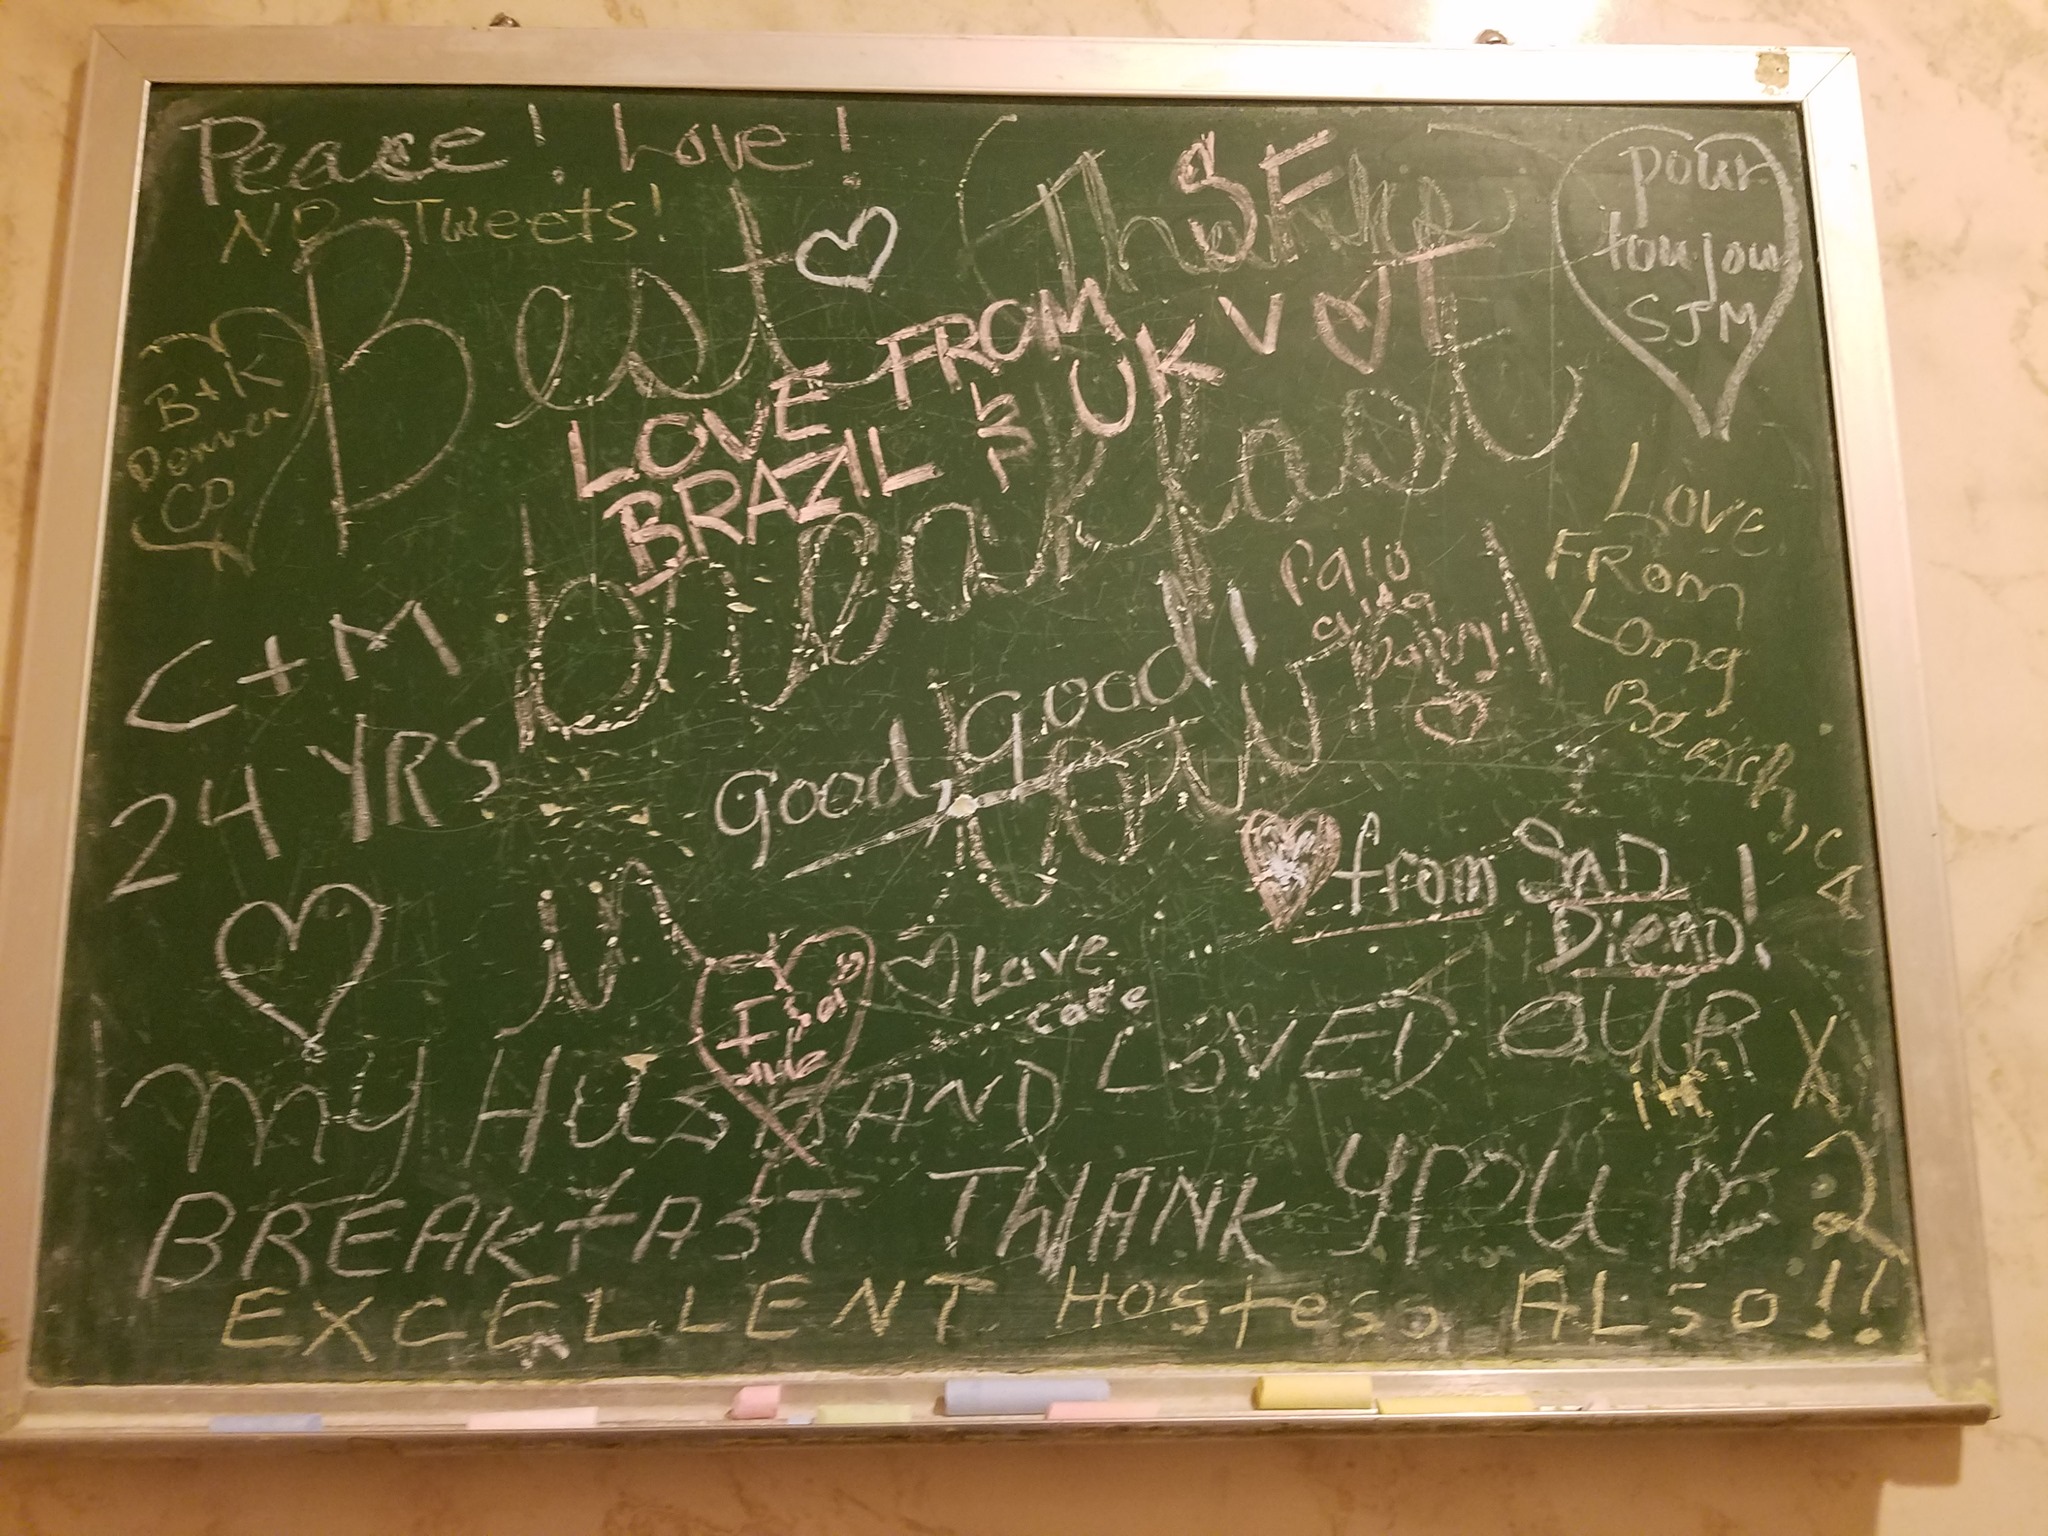 Peace! Love!
NO Tweets!
Thanks
SF
pour
toujour
SJM
Best
LOVE FROM
BRAZIL
UK
B+K
Denver
CO
breakfast
Love
FROM
Long
Beach, CA
Palo
C+M
24 YRS
good, good
in
town
from SAN
DIEGO!
Love
I
MY HUSBAND LOVED OUR
BREAKFAST THANK YOU
EXCELLENT HosTess ALSO!!